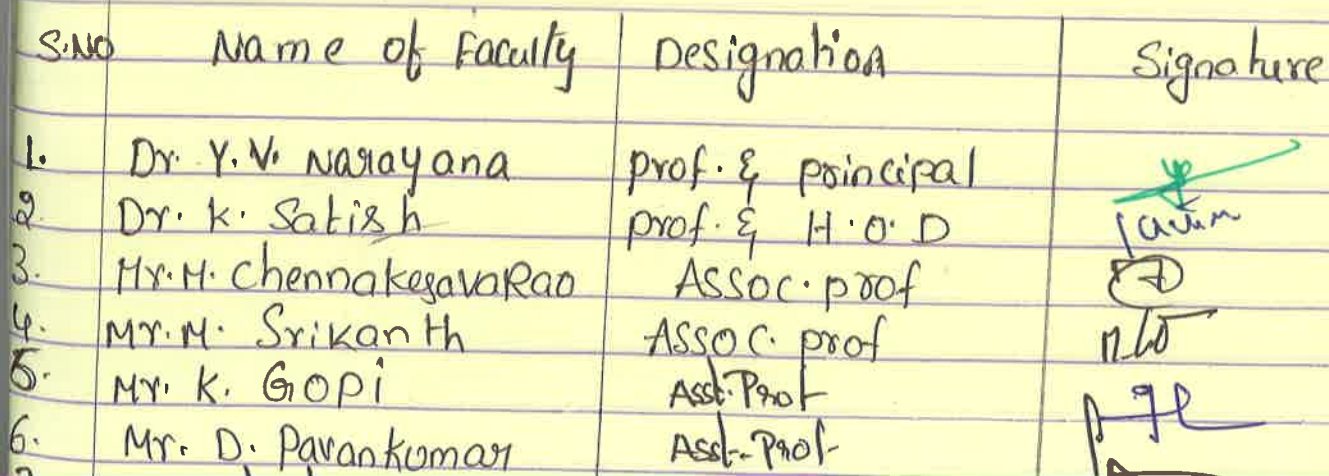 S.NO Name of Faculty Designation Signature
1. Dr. Y.V. Narayana prof. & principal
2. Dr. K. Satish prof. & H.O.D
3. Mr. M. ChennakesavaRao Assoc. prof
4. Mr. M. Srikanth Assoc. prof
5. Mr. K. Gopi Asst. Prof
6. Mr. D. Pavankumar Asst. Prof